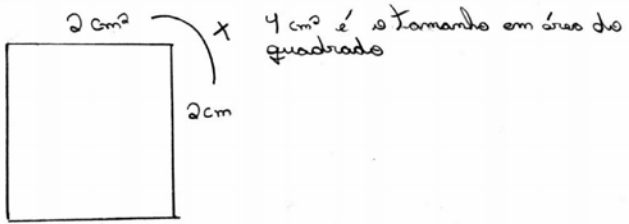 2 cm²
x
4 cm² é o tamanho em área do
quadrado
2cm